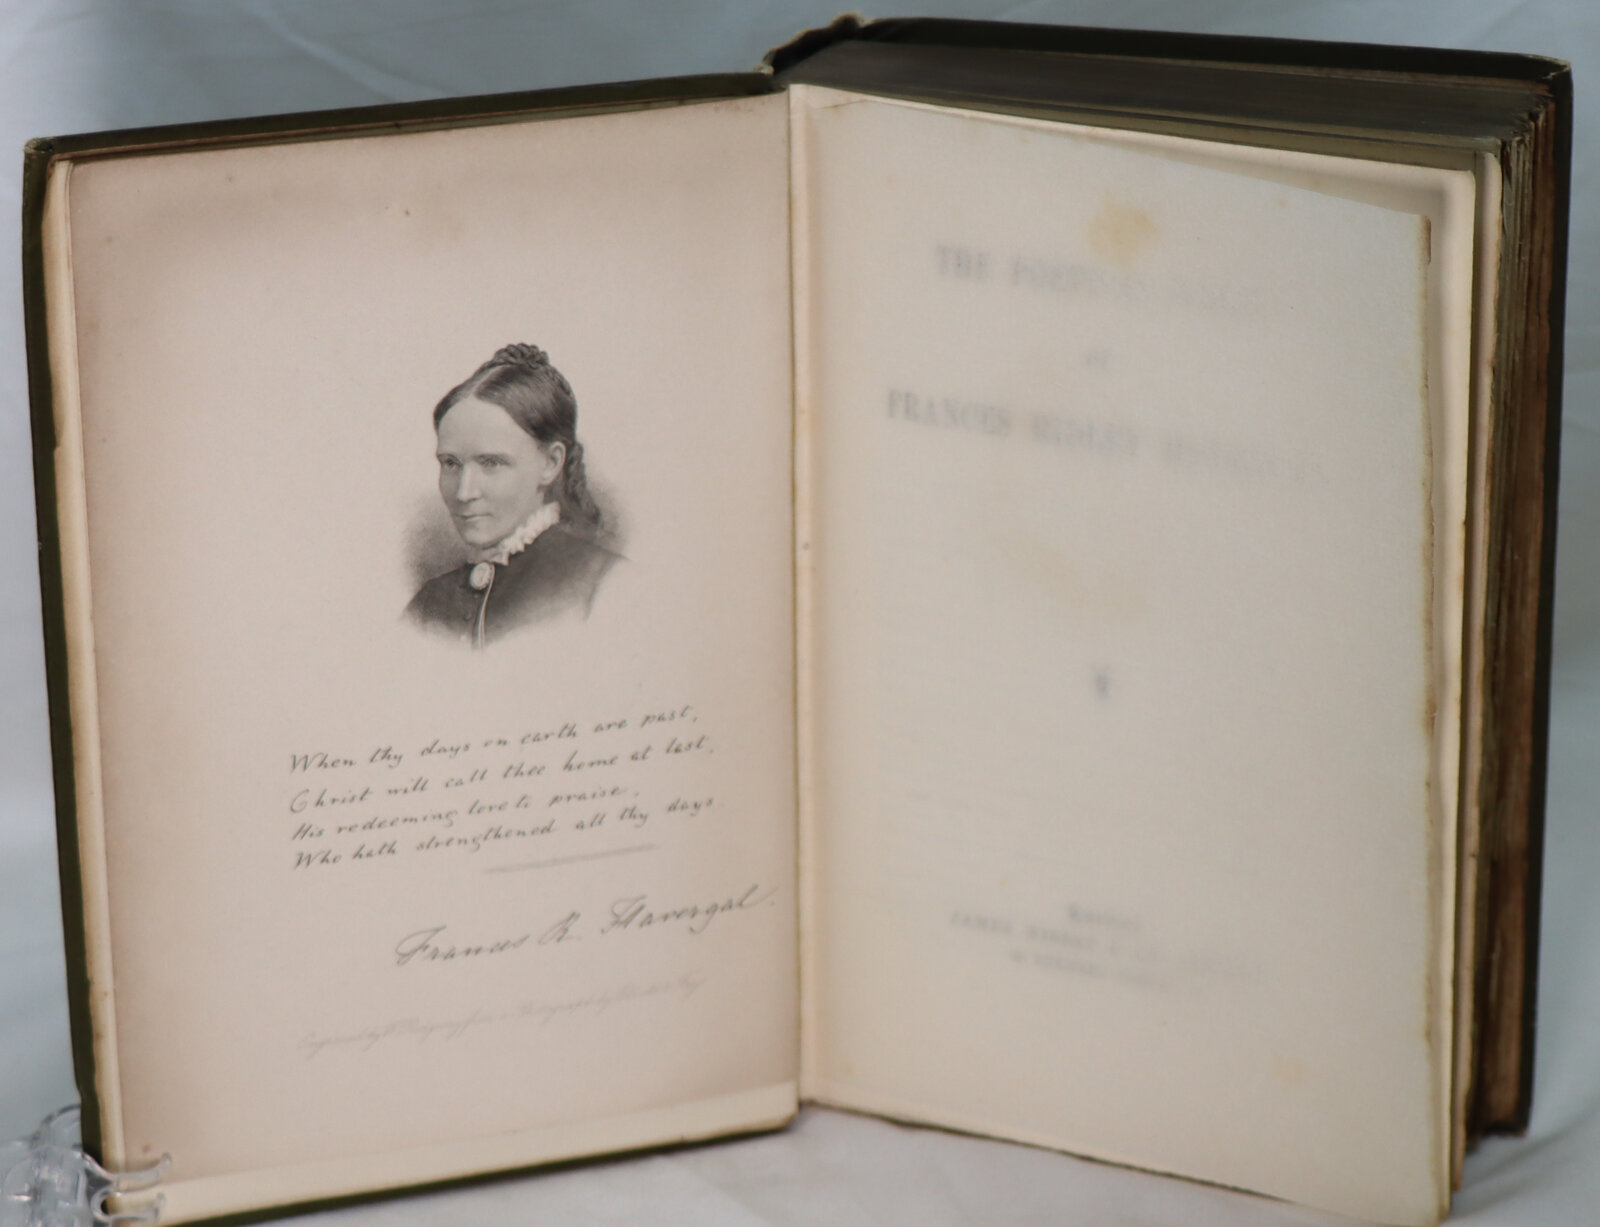 When thy days on earth are past,
Christ will call thee home at last,
His redeeming love to praise,
Who hath strengthened all thy days.
Frances R. Havergal.
Engraved by from a Photograph by
THE POETICAL WORKS
OF
FRANCES RIDLEY HAVERGAL
London:
JAMES NISBET